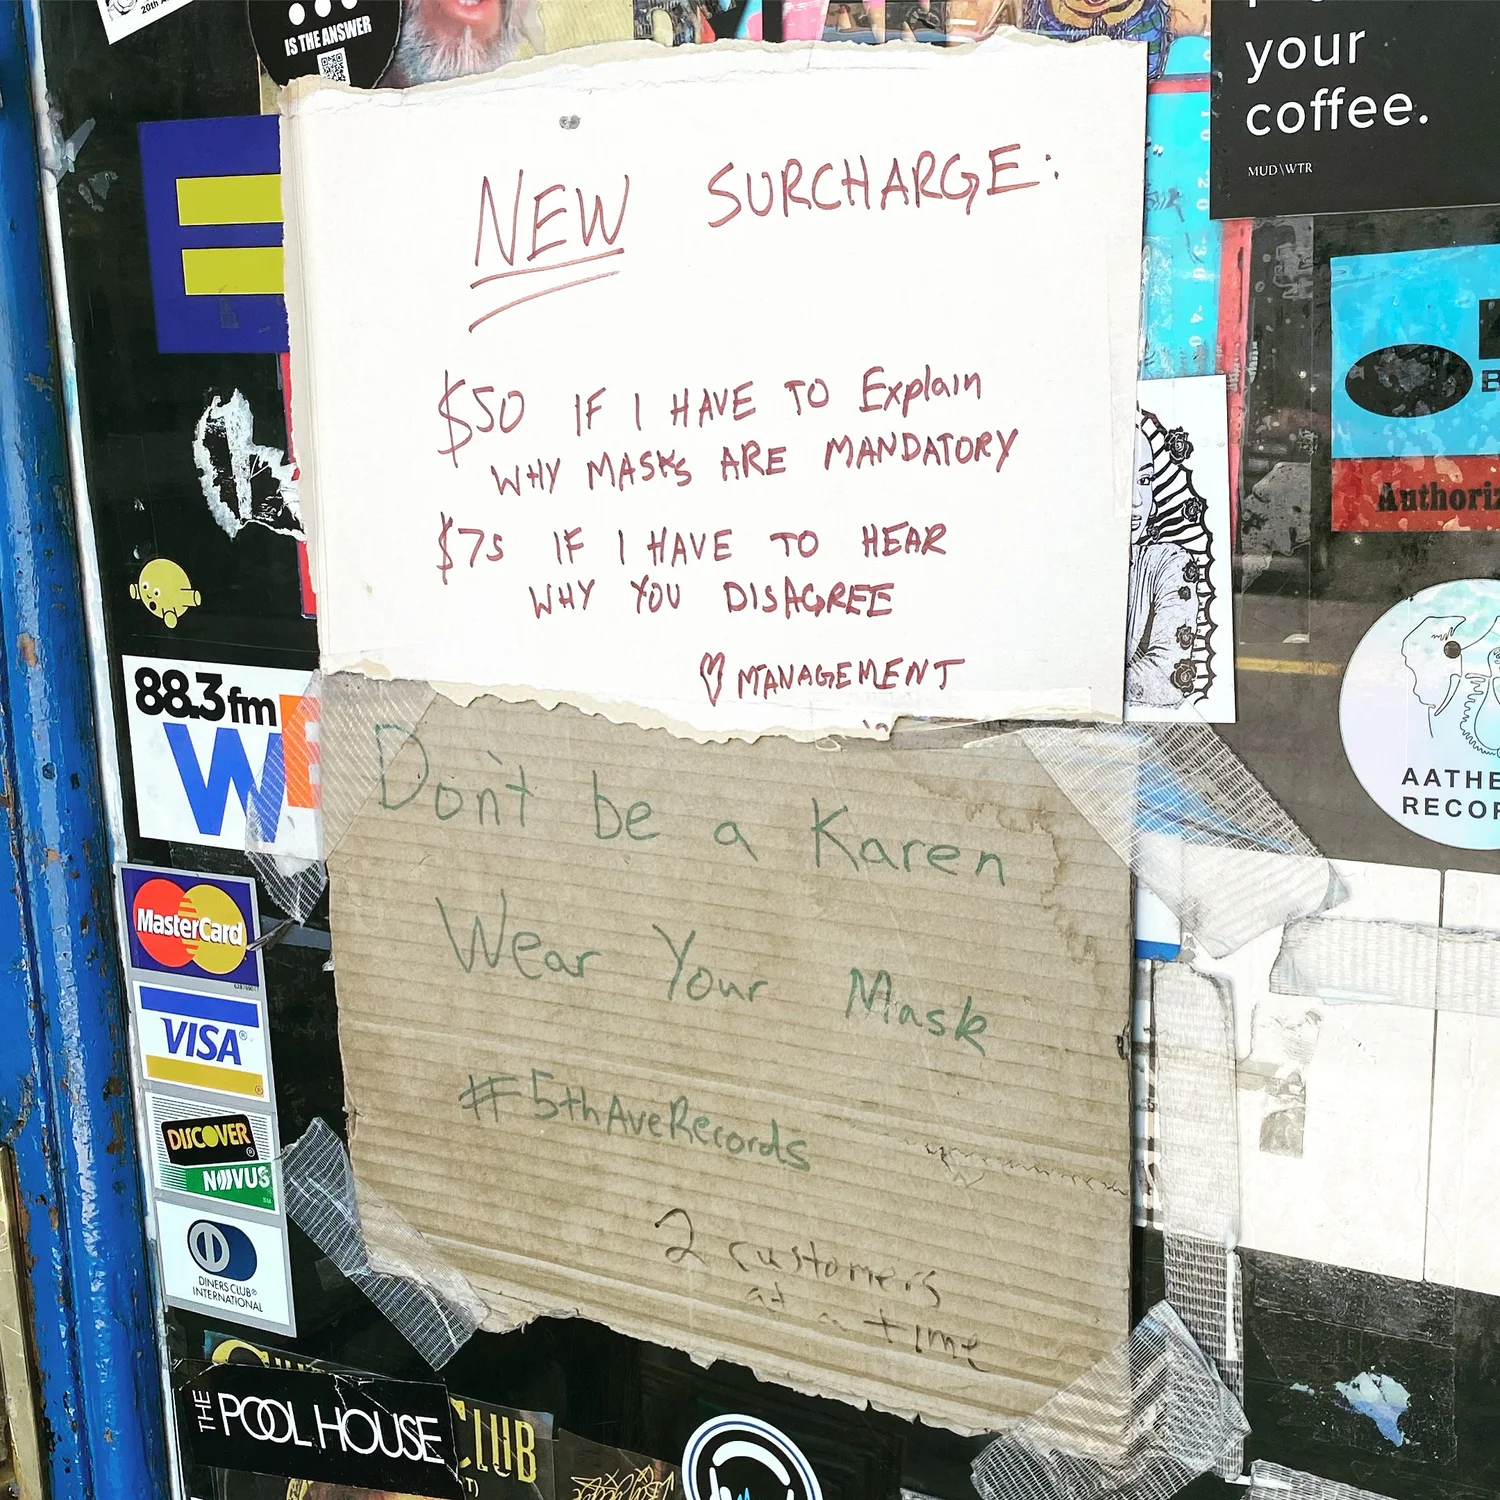 20th A
IS THE ANSWER
your
coffee.
MUD\WTR
NEW SURCHARGE:
$50 IF I HAVE TO Explain
WHY MASKS ARE MANDATORY
$75 IF I HAVE TO HEAR
WHY YOU DISAGREE
♡ MANAGEMENT
Authoriz
88.3 fm
WF
AATHE
RECOR
Don't be a Karen
Wear Your Mask
#5thAveRecords
2 customers
at a time
MasterCard
VISA®
DISCOVER®
NOVUS
DINERS CLUB®
INTERNATIONAL
THE POOL HOUSE
CLUB